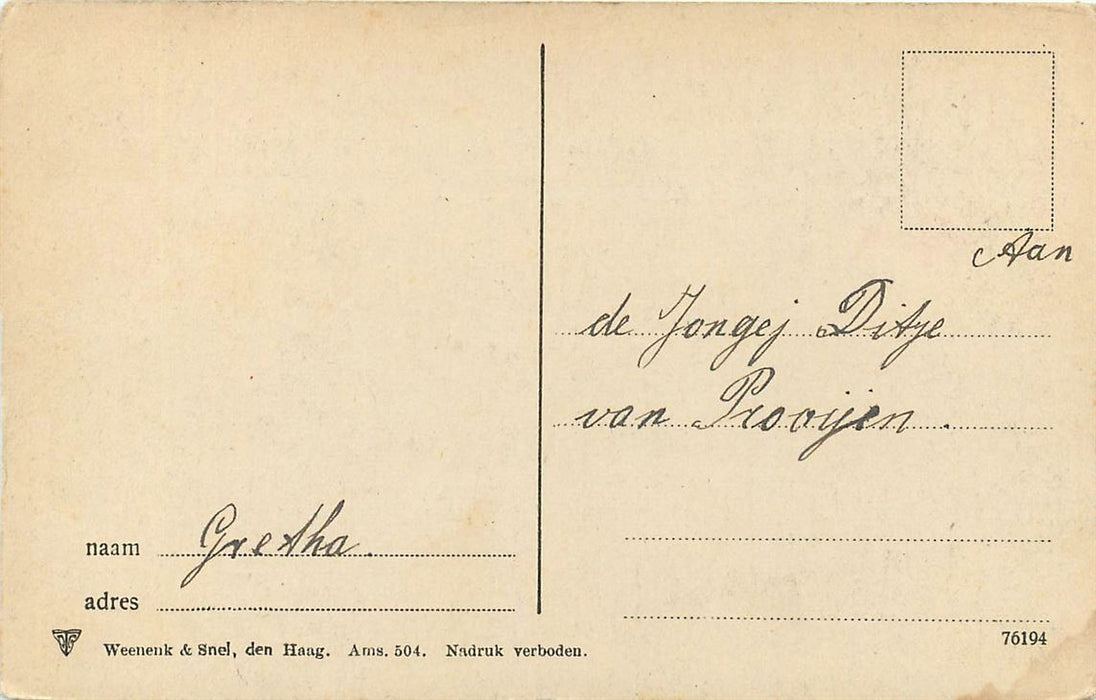 Aan
de Jongej Ditje
van Prooijen.
naam Gretha.
adres
Weenenk & Snel, den Haag. Ams. 504. Nadruk verboden.
76194